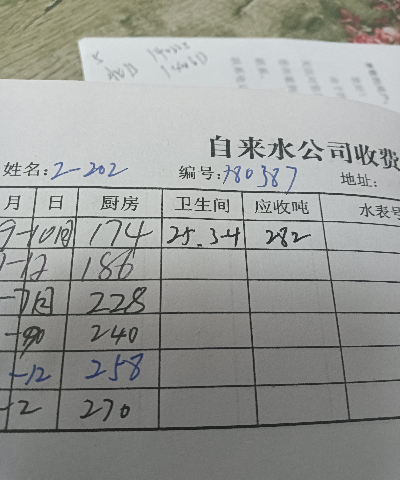 自来水公司收费
姓名: 2-202 编号: 780387 地址:
月 日 厨房 卫生间 应收吨 水表号
9-10日 174 25.3-4 282
-12 186
-7日 228
240
-12 258
-2 270